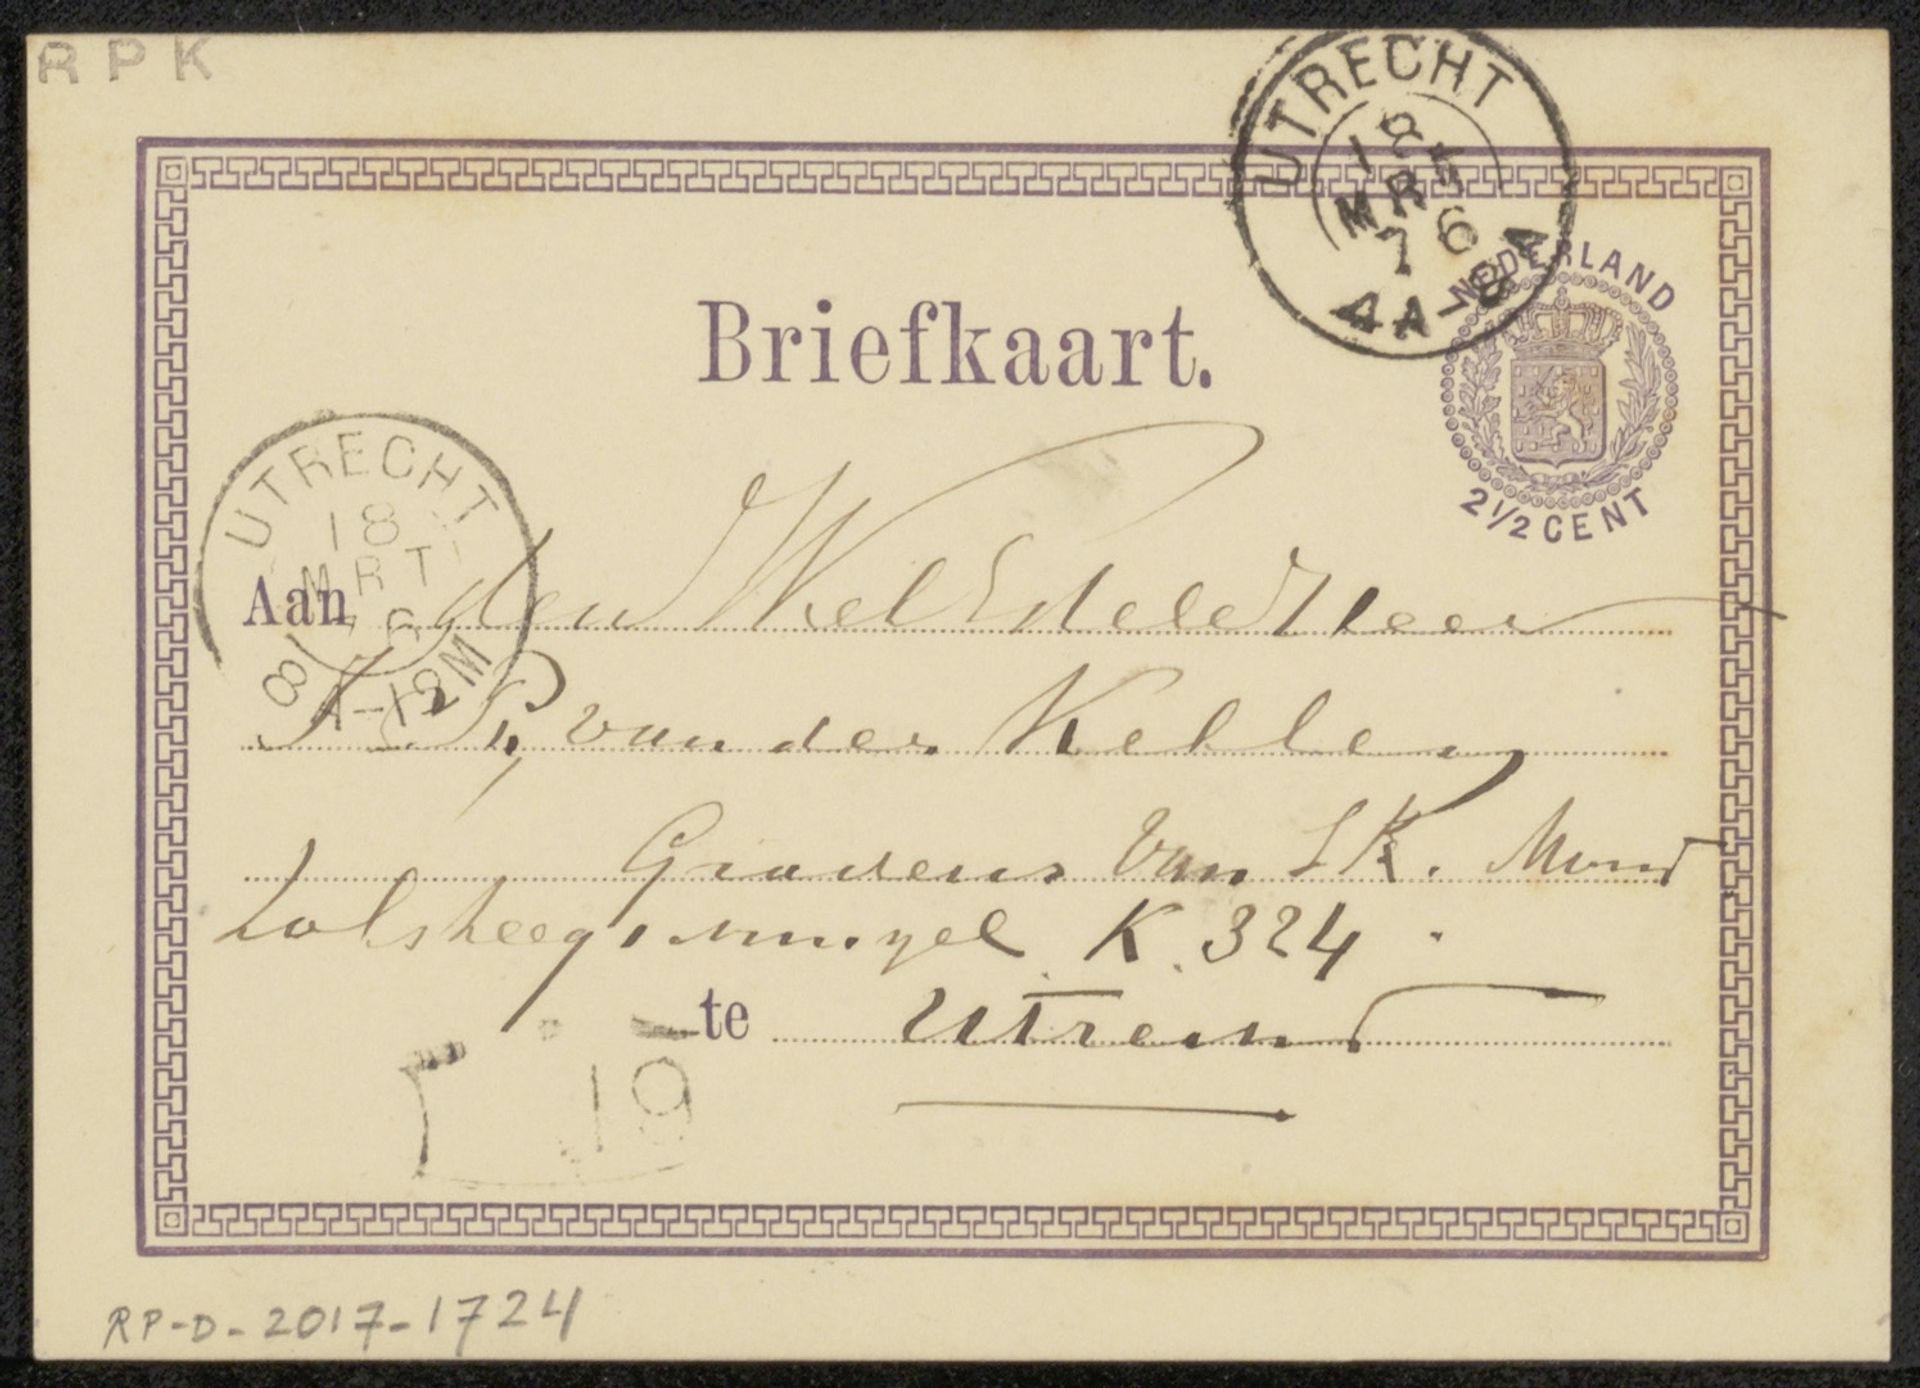 RPK
UTRECHT
18
MRT
76
4A-8A
NEDERLAND
Briefkaart.
2½ CENT
UTRECHT
18
MRT
76
8A-12M
Aan den WelEdele Heer
van der Kellen
Graveur van Z.K. Munt
Tolsteegsingel K. 324.
te Utrecht
19
RP-D-2017-1724